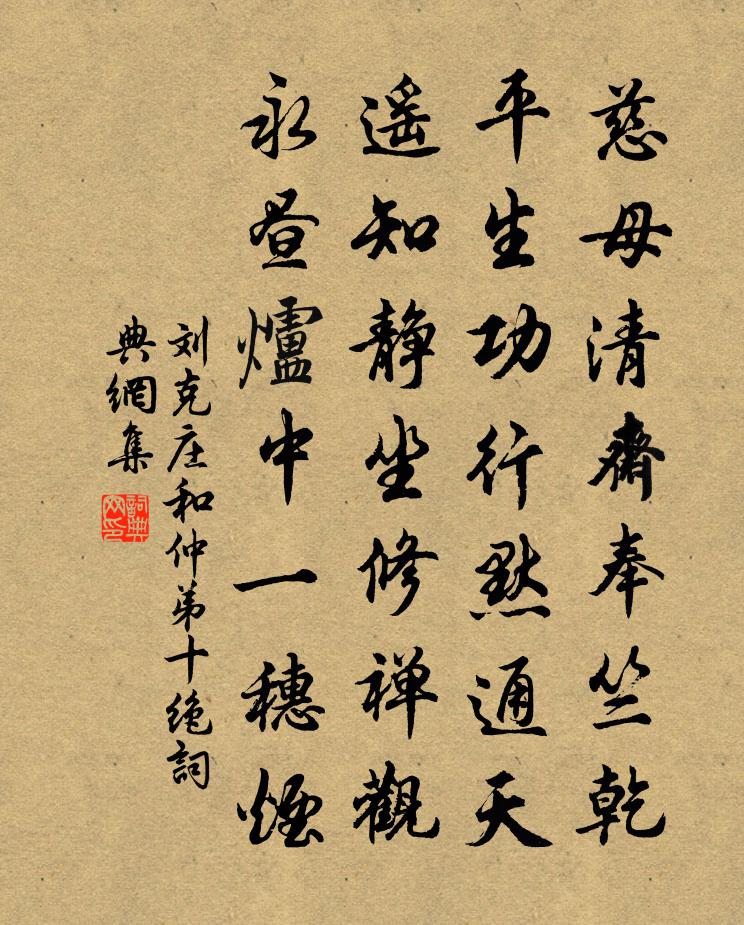 慈母清齋奉竺乾
平生功行默通天
遥知静坐修禅觀
永昼爐中一穗煙
刘克庄和仲弟十绝詞
典網集
詞典
网印